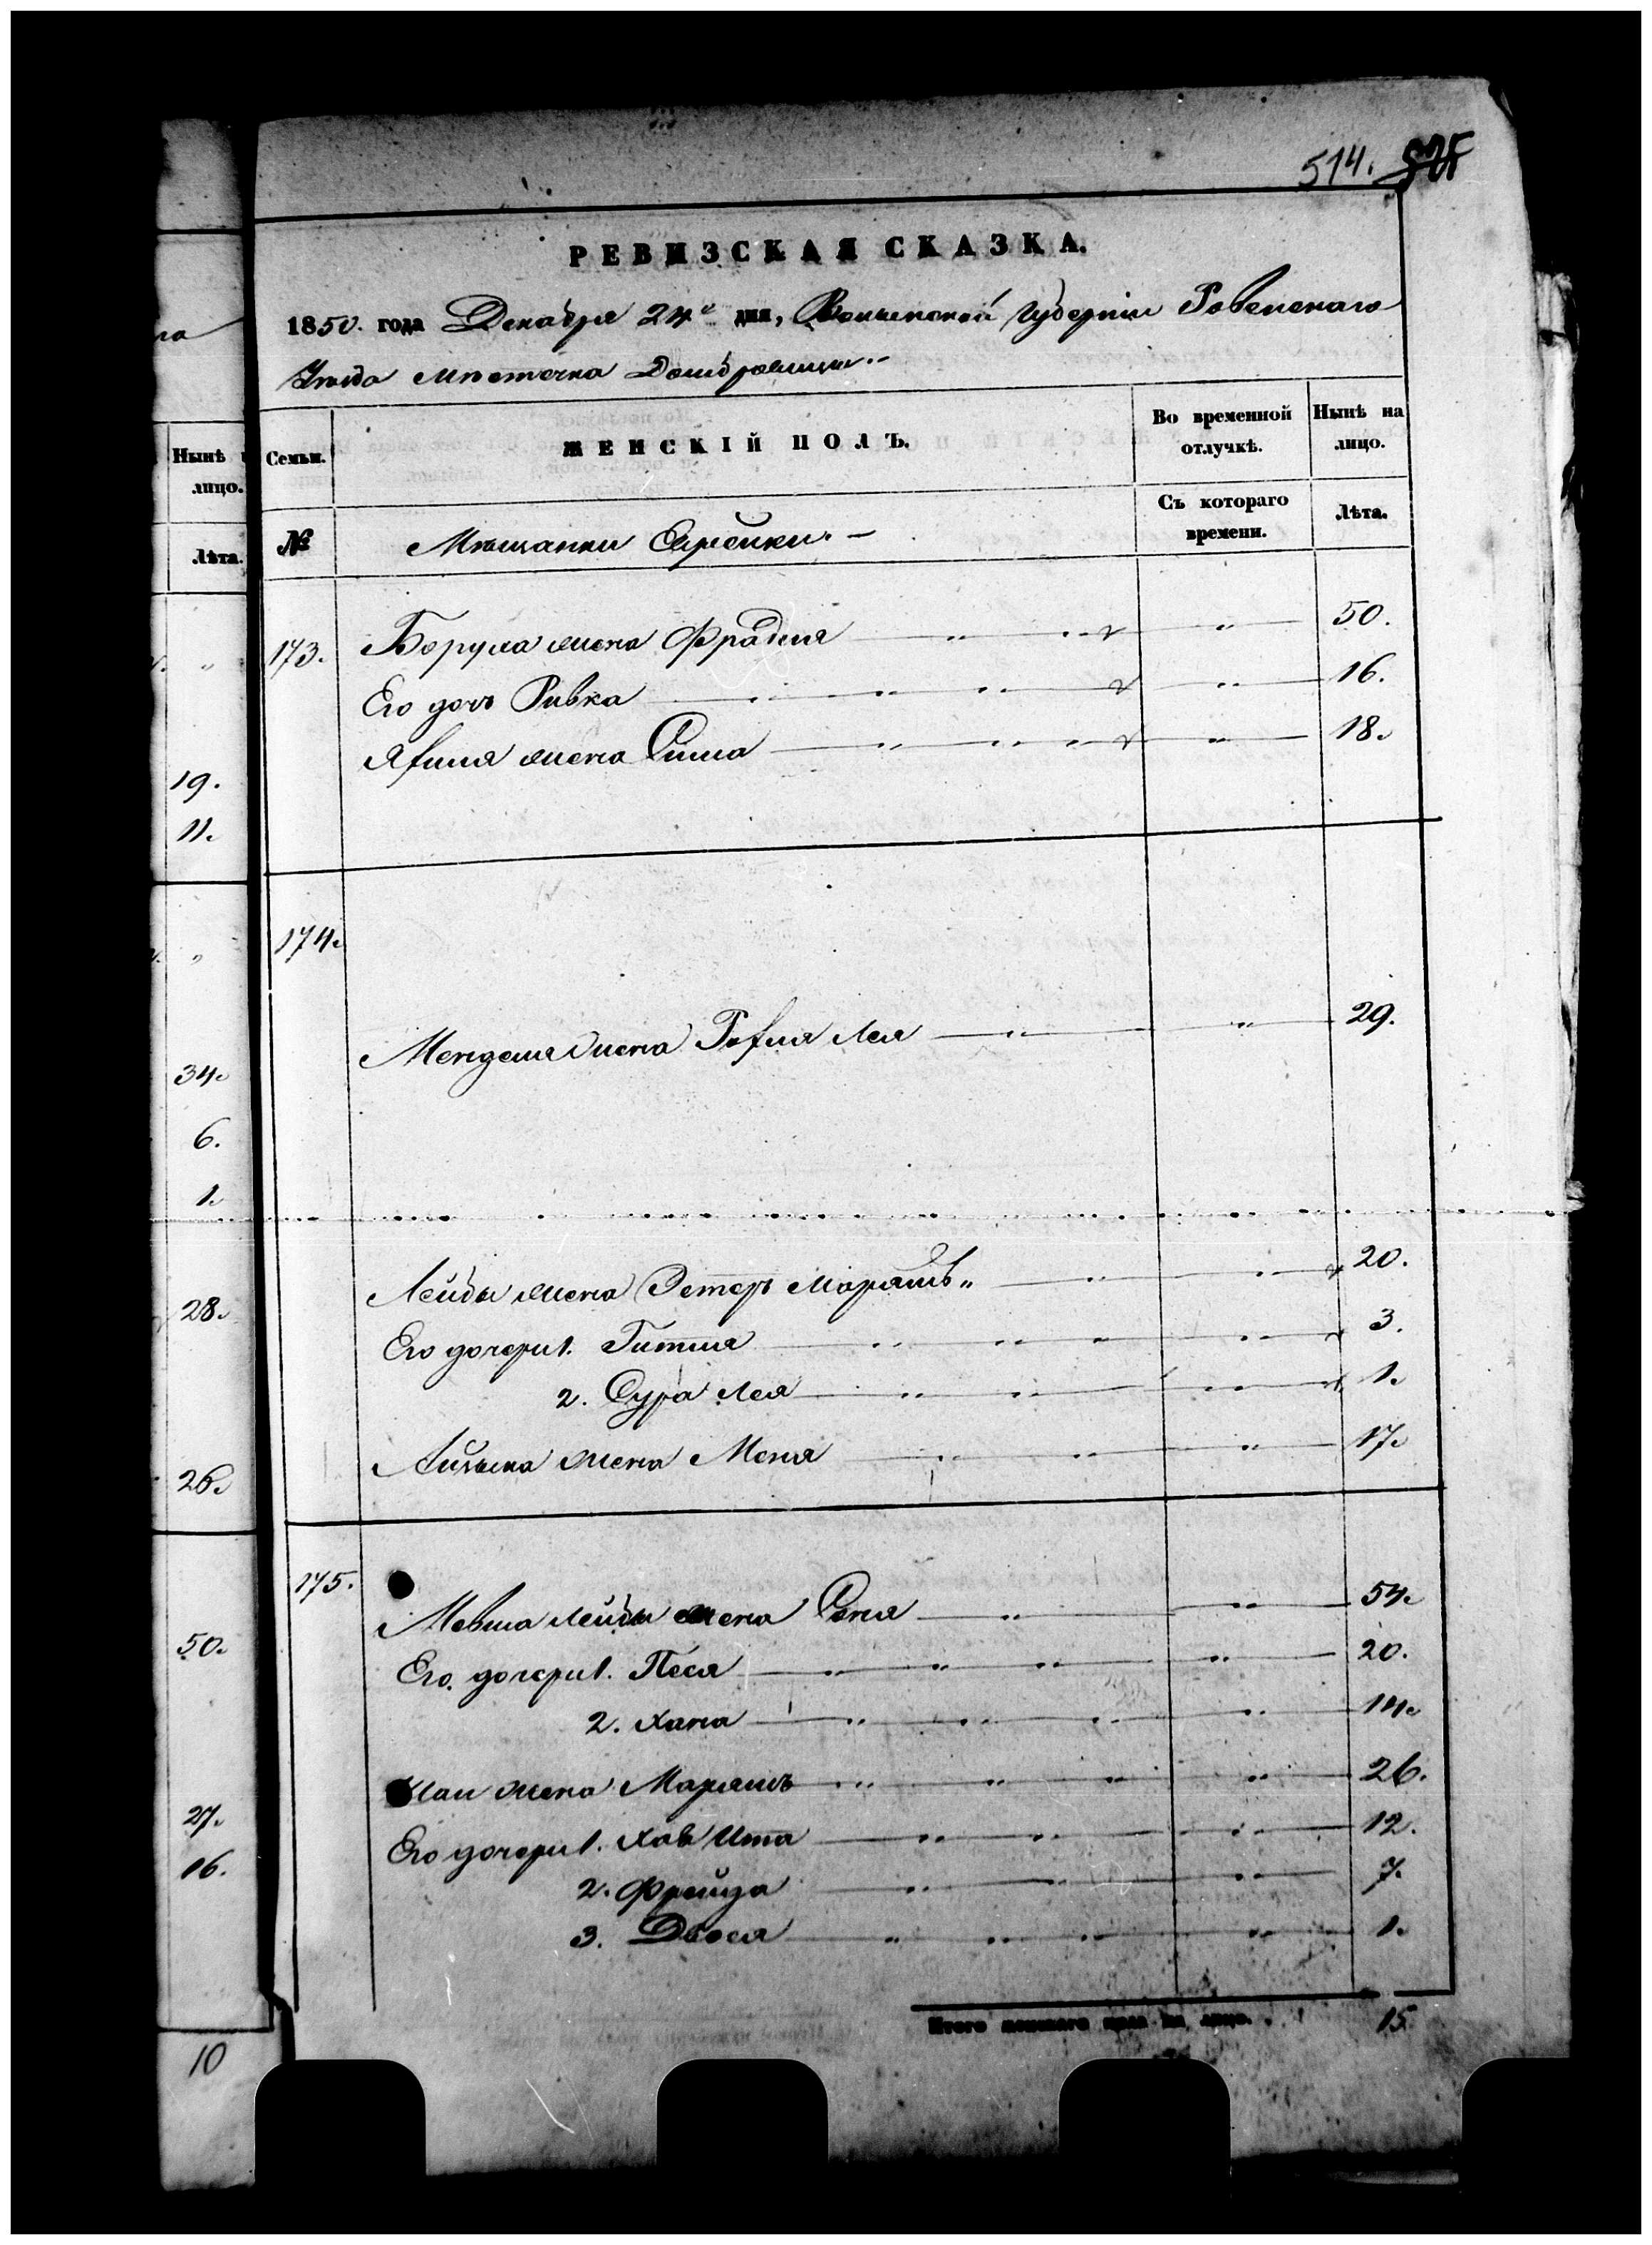 514.
РЕВИЗСКАЯ СКАЗКА.
1850. года Декабря 24го дня, Волынской Губерніи Ровенскаго
Уѣзда мѣстечка Домбровицы
Нынѣ
лицо.
Лѣта.
Семьи.
ЖЕНСКІЙ ПОЛЪ.
Во временной
отлучкѣ.
Нынѣ на
лицо.
Съ котораго
времени.
Лѣта.
№
Мѣщанки Еврейки.
173. Боруха жена Фрадля " 50.
Его дочь Ривка " 16.
жена Сима " 18.
19.
11.
174.
Менделя жена Лея " 29.
34.
6.
1.
Лейбы жена Эстеръ Маріямъ " 20.
28.
Его дочери 1. Гитля " 3.
2. Сура Лея " 1.
жена Меня " 17.
26.
175.
Мовша Лейбы жена Сеня " 54.
50.
Его дочери 1. Песя " 20.
2. Хана " 14.
жена Маріямъ " 26.
27.
Его дочери 1. Хая Ита " 12.
16.
2. Фрейда " 7.
3. Двося " 1.
Итого женскаго пола на лицо. 15
10